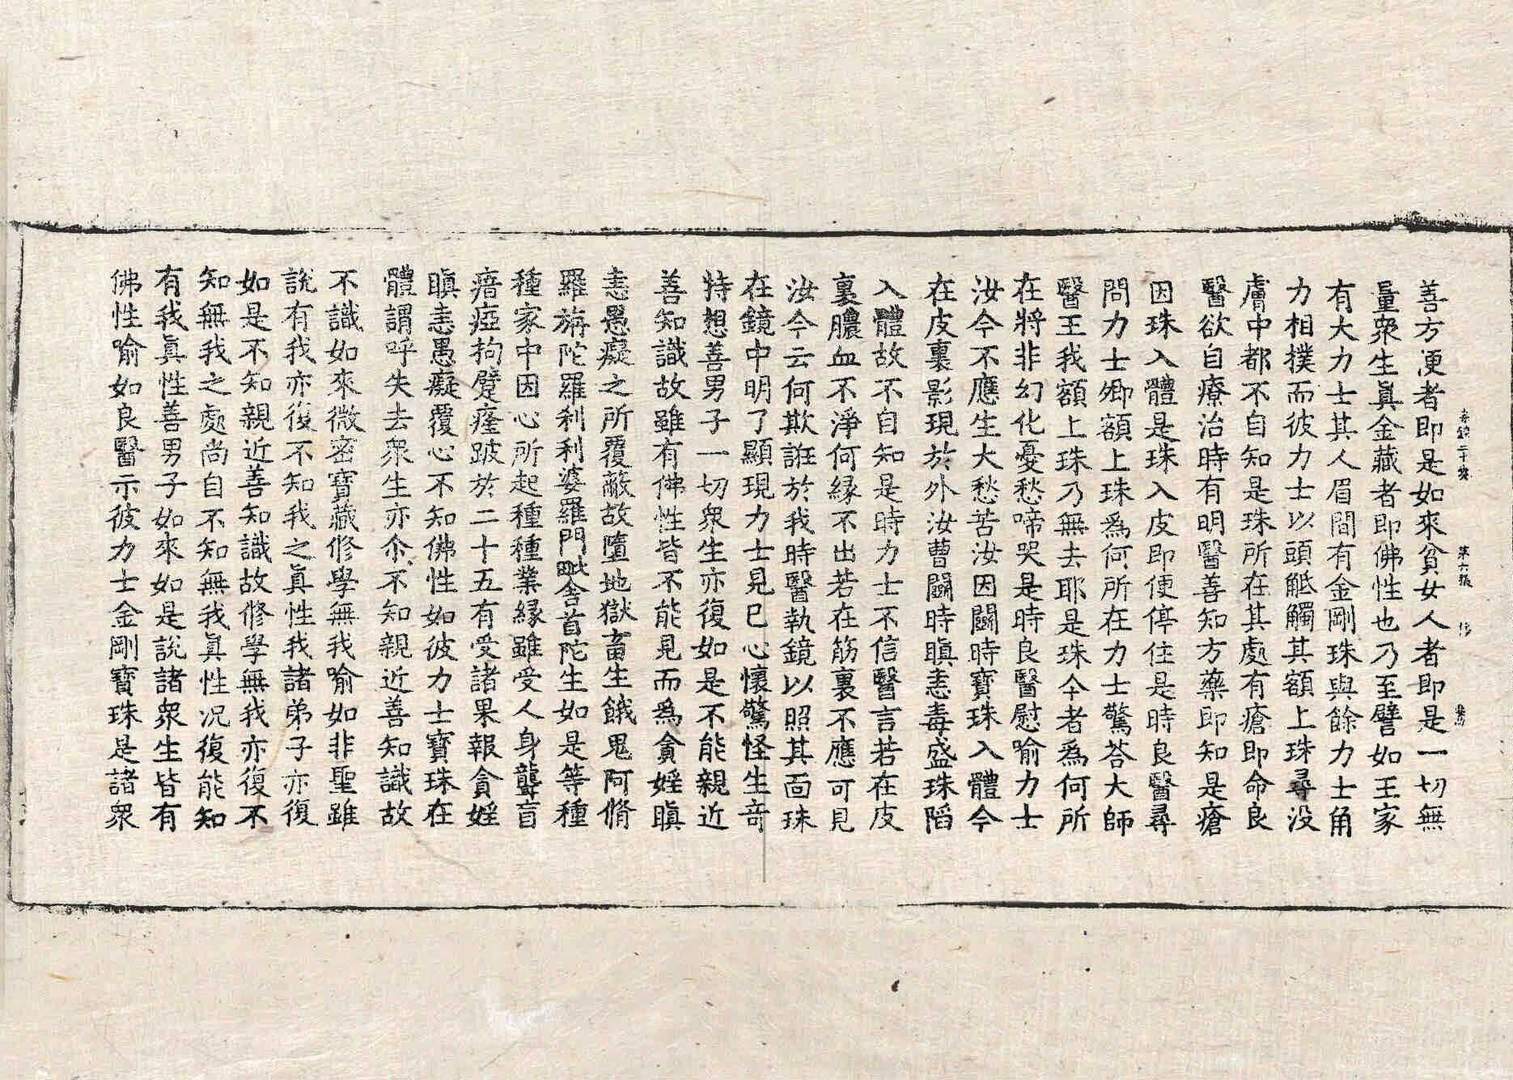 善方便者即是如來貧女人者即是一切無
量衆生眞金藏者即佛性也乃至譬如王家
有大力士其人眉間有金剛珠與餘力士角
力相撲而彼力士以頭觝觸其額上珠尋没
膚中都不自知是珠所在其處有瘡即命良
醫欲自療治時有明醫善知方藥即知是瘡
因珠入體是珠入皮即便停住是時良醫尋
問力士卿額上珠爲何所在力士驚荅大師
醫王我額上珠乃無去耶是珠今者爲何所
在將非幻化憂愁啼哭是時良醫慰喻力士
汝今不應生大愁苦汝因鬭時寶珠入體今
在皮裏影現於外汝曹鬭時瞋恚毒盛珠陷
入體故不自知是時力士不信醫言若在皮
裏膿血不淨何縁不出若在筋裏不應可見
汝今云何欺誑於我時醫執鏡以照其面珠
在鏡中明了顯現力士見已心懷驚怪生竒
特想善男子一切衆生亦復如是不能親近
善知識故雖有佛性皆不能見而爲貪婬瞋
恚愚癡之所覆蔽故墮地獄畜生餓鬼阿脩
羅旃陀羅刹利婆羅門毗舍首陀生如是等種
種家中因心所起種種業縁雖受人身聾盲
瘖瘂拘躄癃跛於二十五有受諸果報貪婬
瞋恚愚癡覆心不知佛性如彼力士寶珠在
體謂呼失去衆生亦尒不知親近善知識故
不識如來微密寶藏修學無我喻如非聖雖
說有我亦復不知我之眞性我諸弟子亦復
如是不知親近善知識故修學無我亦復不
知無我之處尚自不知無我眞性況復能知
有我眞性善男子如來如是說諸衆生皆有
佛性喻如良醫示彼力士金剛寶珠是諸衆